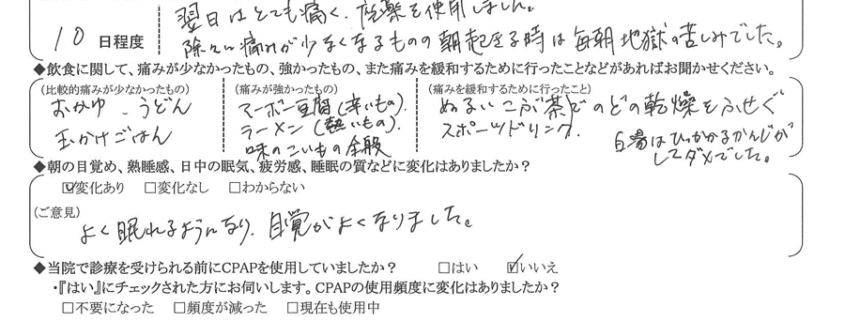 翌日はとても痛く、座薬を使用しました。
10 日程度 除々に痛みが少なくなるものの朝起きる時は毎朝地獄の苦しみでした。
◆飲食に関して、痛みが少なかったもの、強かったもの、また痛みを緩和するために行ったことなどがあればお聞かせください。
(比較的痛みが少なかったもの) (痛みが強かったもの) (痛みを緩和するために行ったこと)
おかゆ、うどん マーボー豆腐(辛いもの). ぬるいこぶ茶でのどの乾燥をふせぐ
玉かけごはん ラーメン(熱いもの). スポーツドリンク. 白湯はひっかかるかんじが
味のこいもの全般 してダメでした。
◆朝の目覚め、熟睡感、日中の眠気、疲労感、睡眠の質などに変化はありましたか?
☑変化あり □変化なし □わからない
(ご意見)
よく眠れるようになり、目覚がよくなりました。
◆当院で診療を受けられる前にCPAPを使用していましたか? □はい ☑いいえ
・『はい』にチェックされた方にお伺いします。CPAPの使用頻度に変化はありましたか?
□不要になった □頻度が減った □現在も使用中